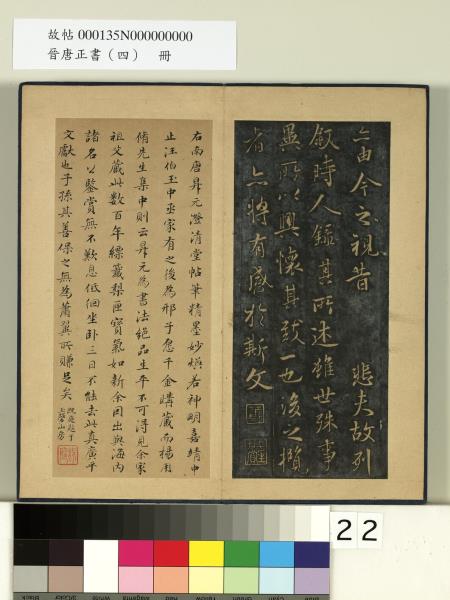 故帖 000135N000000000
晉唐正書（四） 冊
亦由今之視昔 悲夫故列
敘時人錄其所述雖世殊事
異所以興懷其致一也後之攬
者亦將有感於斯文
右南唐昇元澄清堂帖筆精墨妙煥若神明嘉靖中
止汪伯玉中丞家有之後為邢子愿千金購藏而楊用
脩先生集中則云昇元為書法絕品生平不可得見余家
祖父藏此數百年縹籤梨匣寶氣如新余因出與海內
諸名公鑒賞無不歎息低徊坐臥三日不能去此真廣平
文獻也子孫其善保之無為蕭翼所賺足矣
山房
22
Black
3/Color
White
Magenta
Red
Yellow
Green
Cyan
Blue